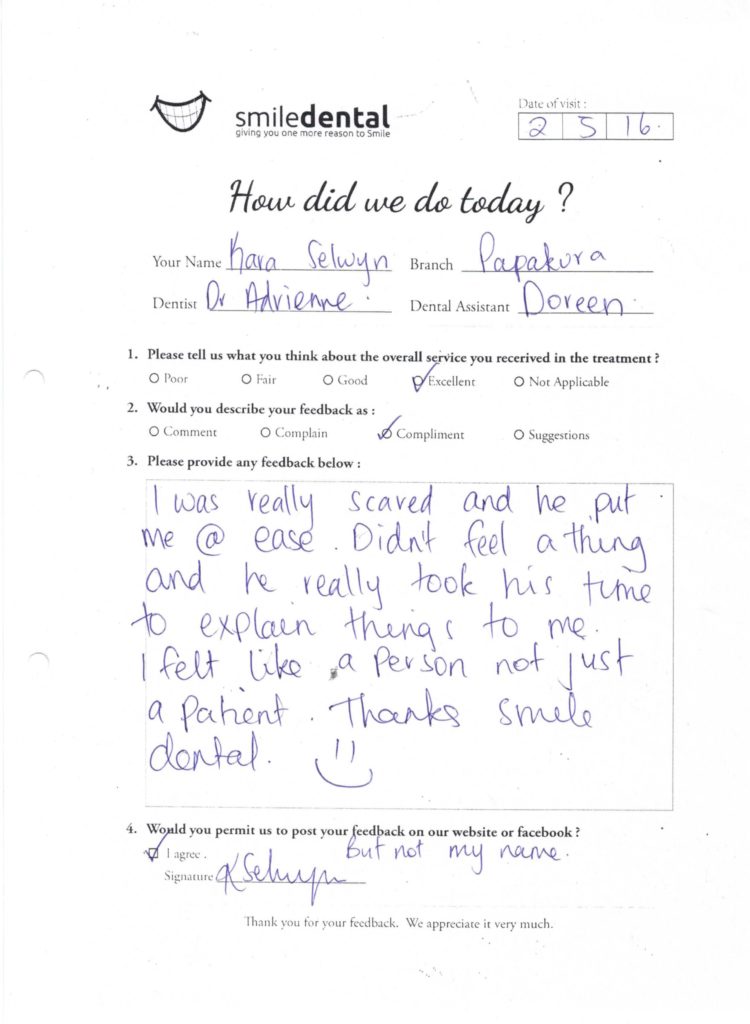 smiledental
giving you one more reason to Smile
Date of visit :
2 5 16.
How did we do today ?
Your Name Kara Selwyn Branch Papakura
Dentist Dr Adrienne. Dental Assistant Doreen.
1. Please tell us what you think about the overall service you recerived in the treatment ?
Poor Fair Good Excellent Not Applicable
2. Would you describe your feedback as :
Comment Complain Compliment Suggestions
3. Please provide any feedback below :
I was really scared and he put
me @ ease. Didn't feel a thing
and he really took his time
to explain things to me.
I felt like a person not just
a patient. Thanks smile
dental.
4. Would you permit us to post your feedback on our website or facebook ?
I agree. But not my name.
Signature KSelwyn
Thank you for your feedback. We appreciate it very much.